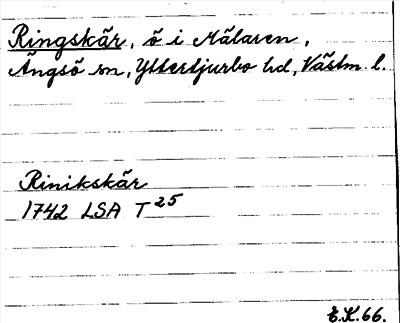 Ringskär, ö i Mälaren,
Ängsö sn, Yttertjurbo hd, Västm. l.
Rinikskär
1742 LSA T 25
E.K. 66.